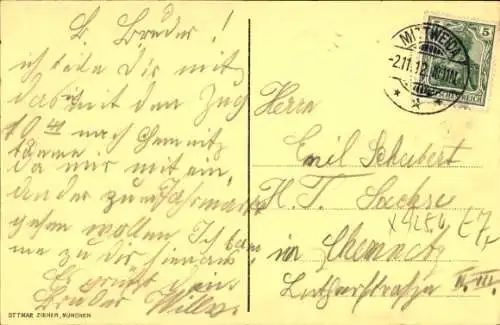 L. Bruder!
ich teile Dir mit
das ich mit dem Zug
10 44 nach Chemnitz
komme
da wir mit ein
ander zum Jahrmarkt
gehen wollen Ich kom
me zu dir hinaus
Es grüßt dein
Bruder Willy
OTTMAR ZIEHER, MÜNCHEN
MITTWEIDA
-2.11.12. 10-11N.
5
Herrn
Emil Schubert
H. T. Sachse
x4254
in Chemnitz
Lutherstraße II. III.